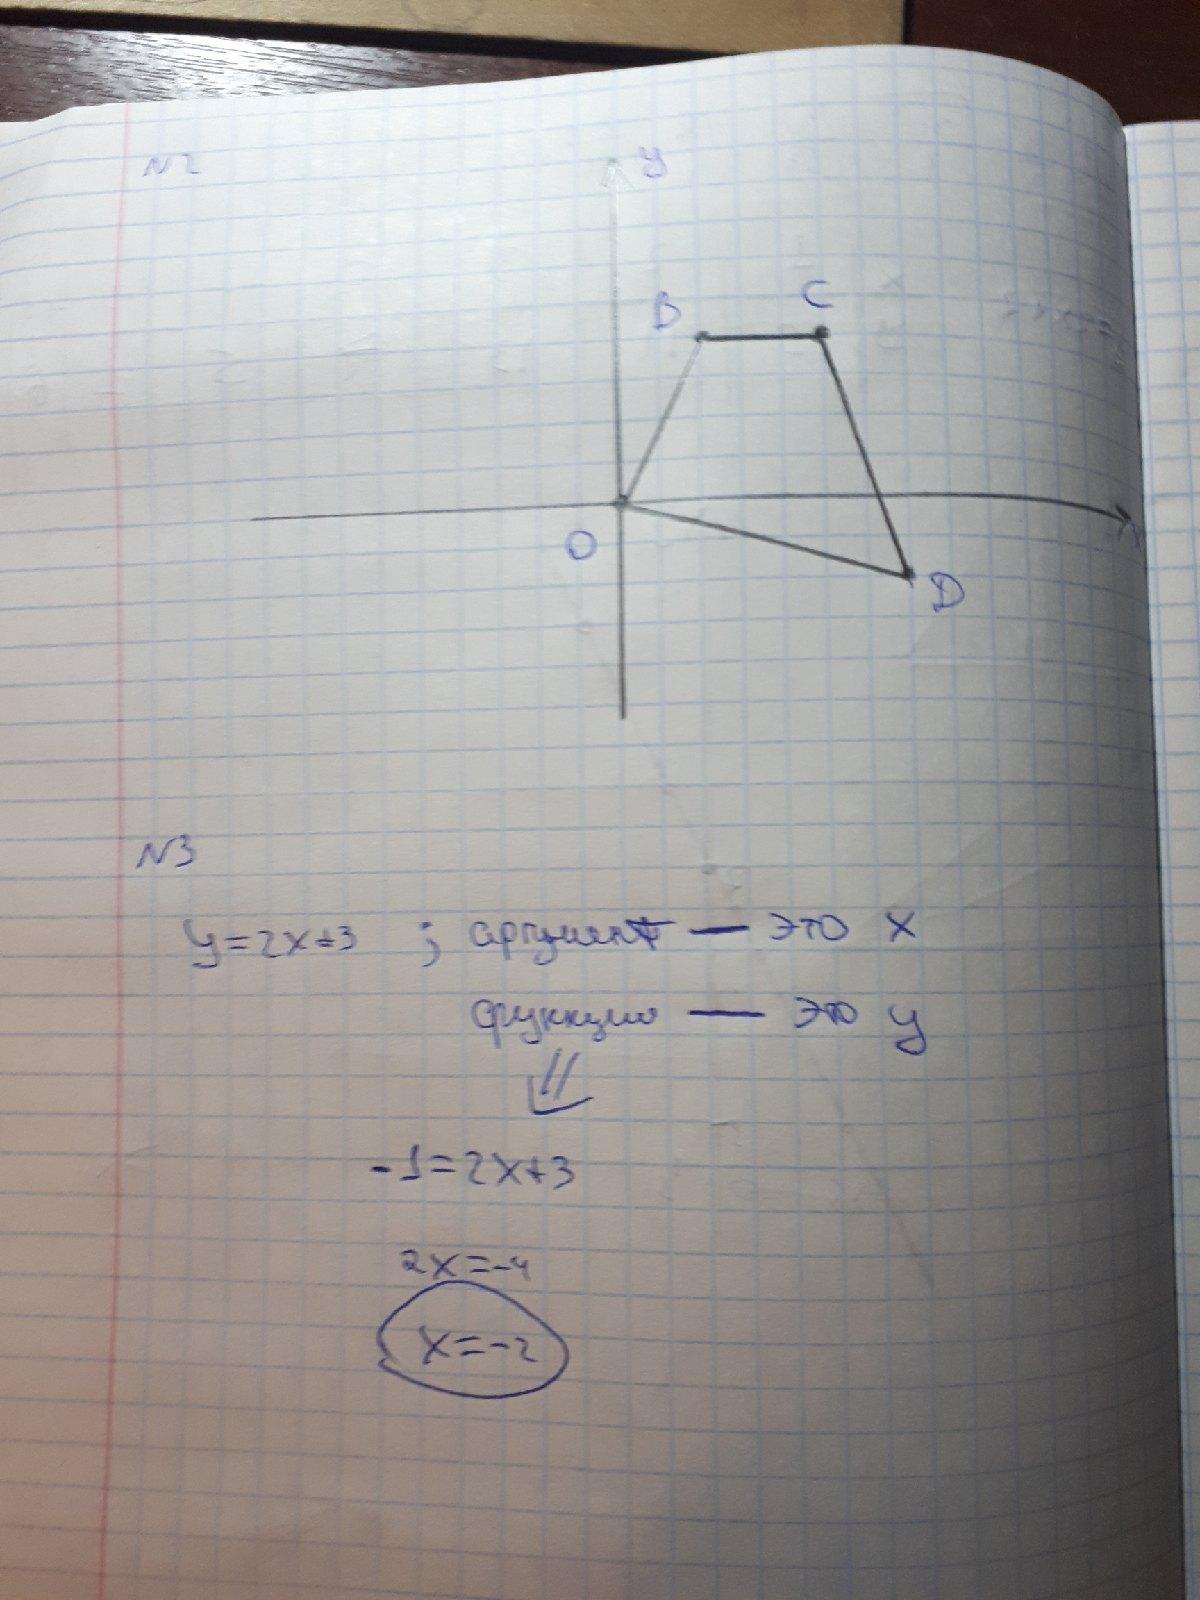 N2
y
B
C
O
D
N3
y=2x+3 ; аргумент — это x
функция — это y
-1=2x+3
2x=-4
x=-2